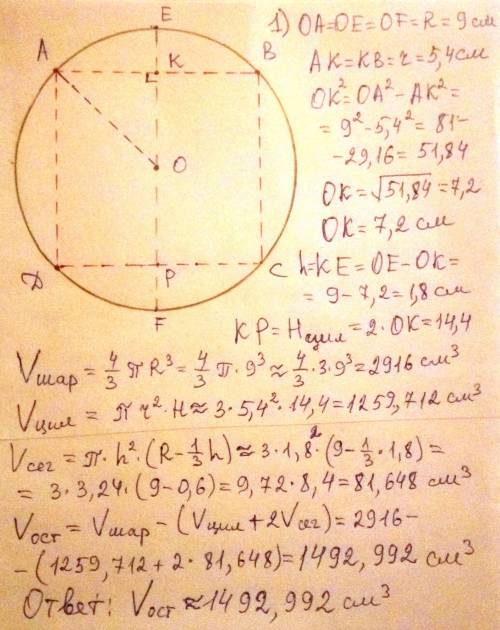 E
A
K
B
O
D
P
C
F
1) OA=OE=OF=R=9см
AK=KB=r=5,4см
OK²=OA²-AK²=
=9²-5,4²=81-
-29,16=51,84
OK=√51,84=7,2
OK=7,2 см
h=KE=OE-OK=
=9-7,2=1,8 см
KP=Hцил=2·OK=14,4
Vшар=4/3 πR³=4/3 π·9³≈4/3·3·9³=2916 см³
Vцил=πr²·H≈3·5,4²·14,4=1259,712 см³
Vсег=π·h²·(R-1/3h)≈3·1,8²·(9-1/3·1,8)=
=3·3,24·(9-0,6)=9,72·8,4=81,648 см³
Vост=Vшар-(Vцил+2Vсег)=2916-
-(1259,712+2·81,648)=1492,992 см³
Ответ: Vост≈1492,992 см³